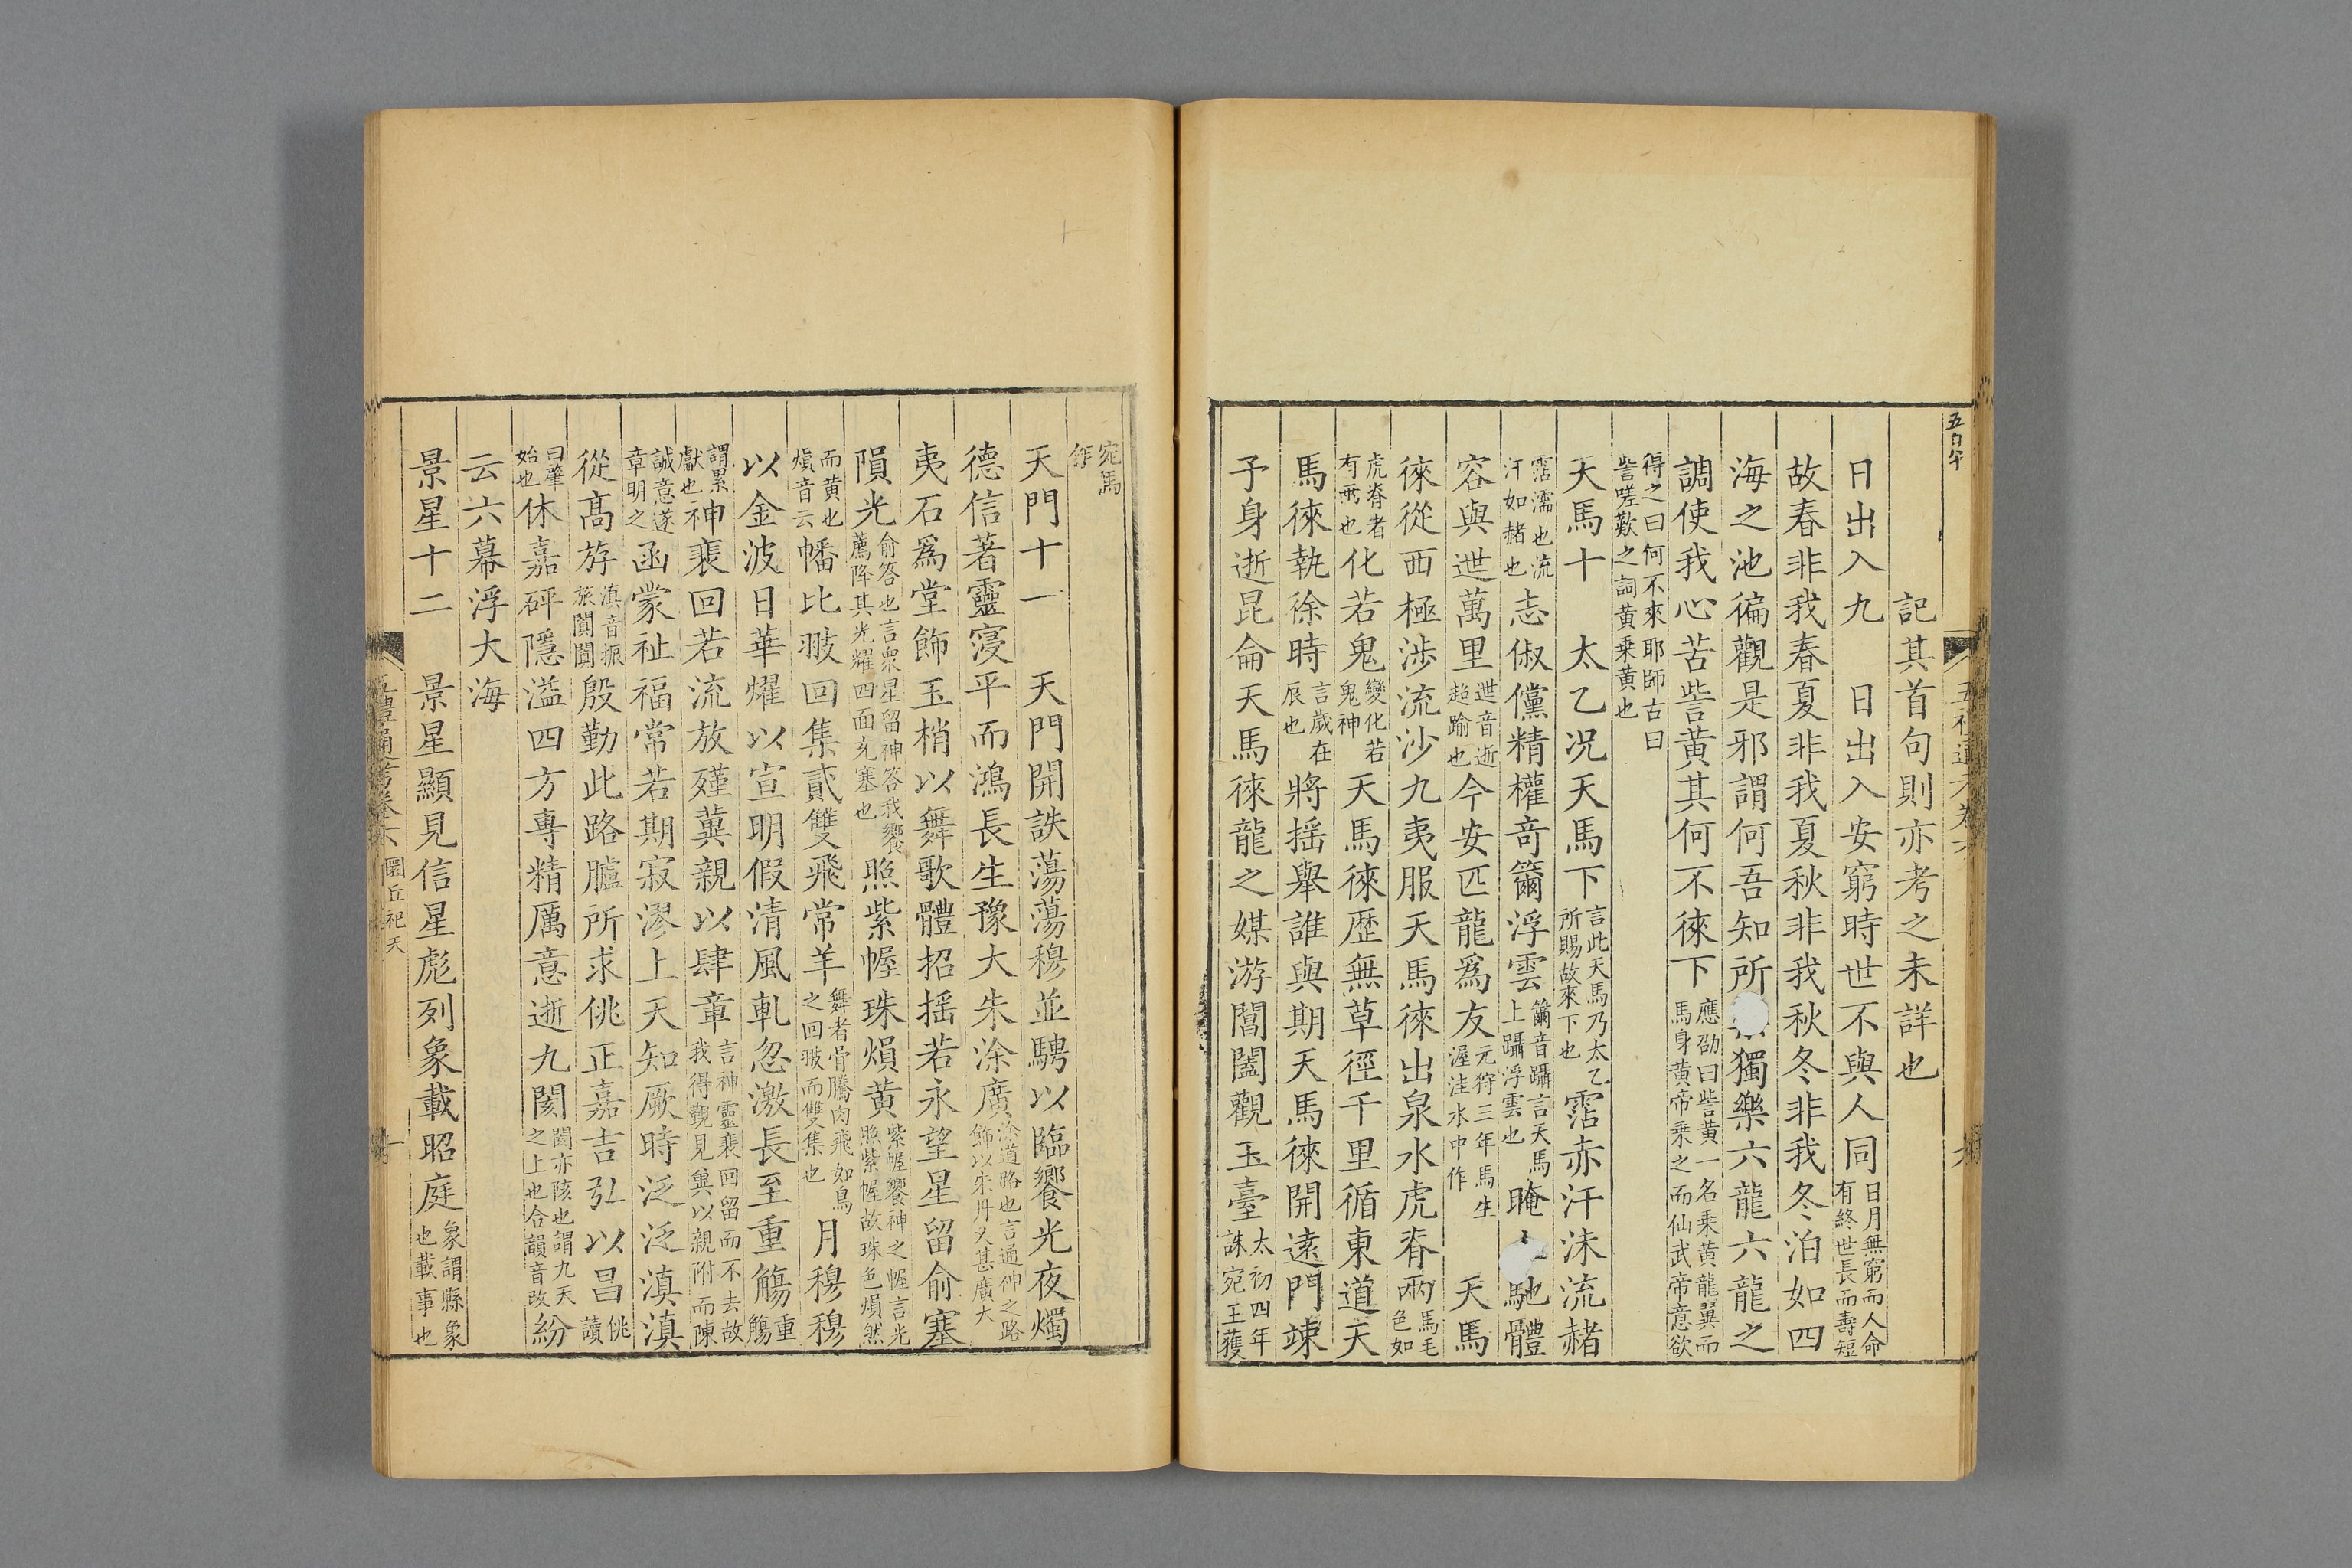 記其首句則亦考之未詳也
日出入九　日出入安窮時世不與人同日月無窮而人命有終世長而壽短
故春非我春夏非我夏秋非我秋冬非我冬泊如四
海之池徧觀是邪謂何吾知所獨樂六龍六龍之
調使我心苦訾黃其何不徠下應劭曰訾黃一名乗黃龍翼而馬身黃帝乗之而仙武帝意欲
得之曰何不來耶師古曰訾嗟歎之詞黃乗黃也
天馬十　太乙况天馬下言此天馬乃太乙所賜故來下也霑赤汗沬流赭
霑濡也流汗如赭也志俶儻精權竒籋浮雲籋音躡言天馬上躡浮雲也晻馳體
容與迣萬里迣音逝超踰也今安匹龍爲友元狩三年馬生渥洼水中作　天馬
徠從西極涉流沙九夷服天馬徠出泉水虎脊兩馬毛色如
虎脊者有兩也化若鬼變化若鬼神天馬徠歷無草徑千里循東道天
馬徠執徐時言歲在辰也將揺舉誰與期天馬徠開遠門竦
予身逝昆侖天馬徠龍之媒游閶闔觀玉臺太初四年誅宛王獲
宛馬作
天門十一　天門開詄蕩蕩穆並騁以臨饗光夜燭
德信著靈寖平而鴻長生豫大朱涂廣涂道路也言通神之路飾以朱丹又甚廣大
夷石爲堂飾玉梢以舞歌體招揺若永望星留俞塞
隕光俞答也言衆星留神答我饗薦降其光耀四面充塞也照紫幄珠熉黃紫幄饗神之幄言光照紫幄故珠色熉然
而黃也熉音云幡比翄回集貳雙飛常羊舞者骨騰肉飛如鳥之回翄而雙集也月穆穆
以金波日華燿以宣明假清風軋忽激長至重觴重觴
謂累獻也神裴回若流放殣冀親以肆章言神靈裴回留而不去故我得覲見冀以親附而陳
誠意遂章明之函蒙祉福常若期寂漻上天知厥時泛泛滇滇
從髙斿滇音振旅闐闐殷勤此路臚所求佻正嘉吉弘以昌佻讀
曰肇始也休嘉砰隱溢四方專精厲意逝九閡閡亦陔也謂九天之上也合韻音改紛
云六幕浮大海
景星十二　景星顯見信星彪列象載昭庭象謂縣象也載事也
五禮通考卷六　圜丘祀天